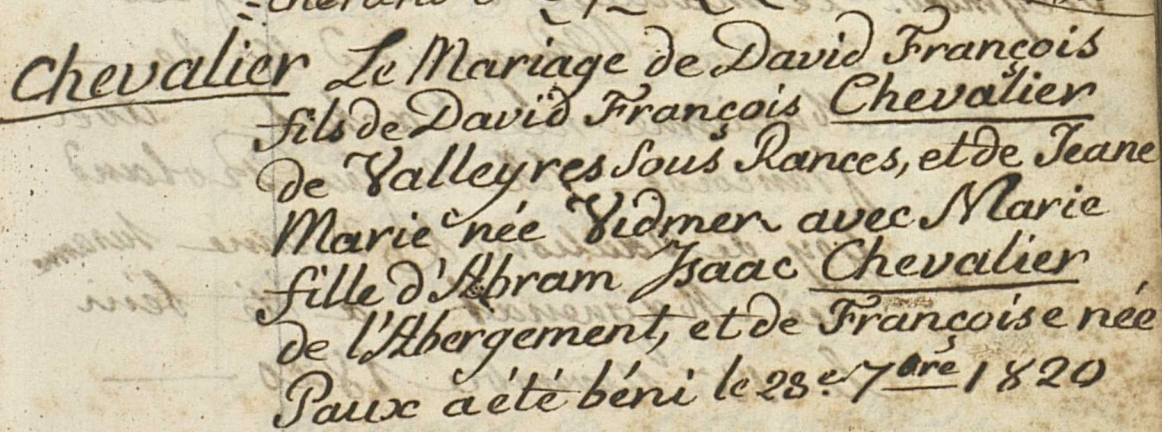 Chevalier Le Mariage de David François
fils de David François Chevalier
de Valleyres sous Rances, et de Jeane
Marie née Vidmer avec Marie
fille d'Abram Isaac Chevalier
de l'Abergement, et de Françoise née
Paux a été béni le 28.e 7bre 1820